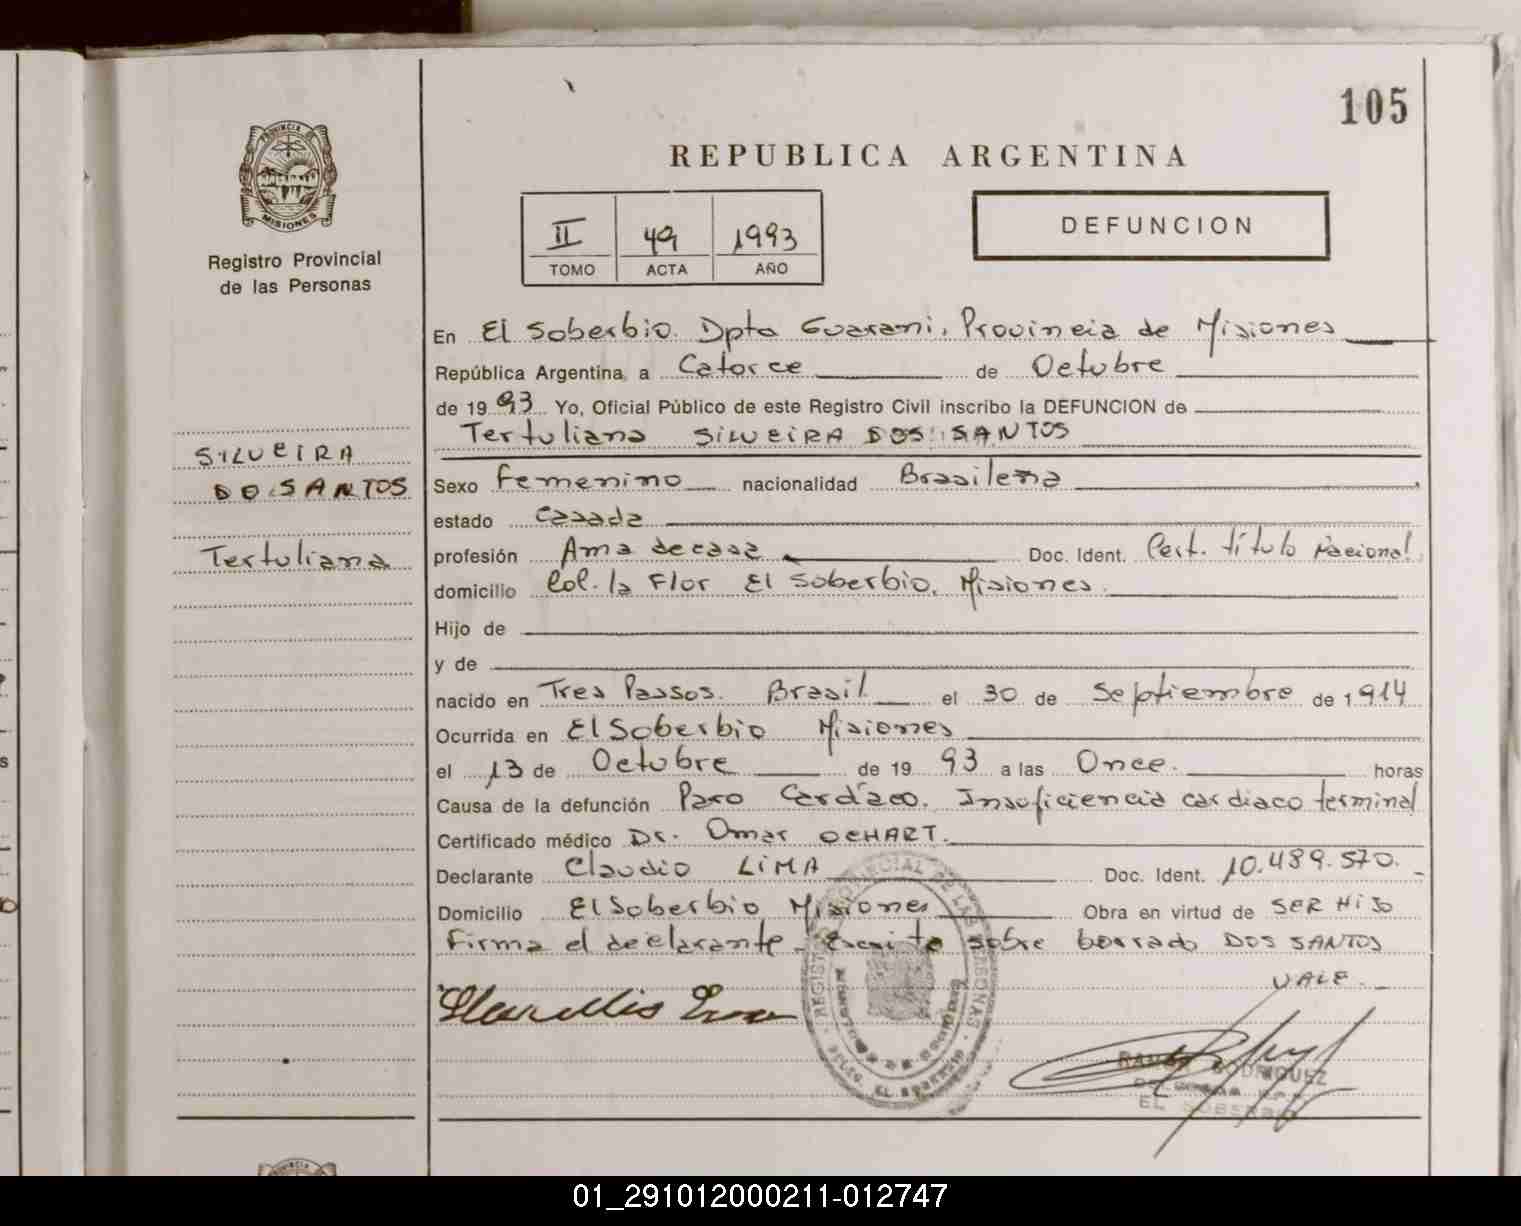 105
REPUBLICA ARGENTINA
PROVINCIA DE
MISIONES
Registro Provincial
de las Personas
II 49 1993
TOMO ACTA AÑO
DEFUNCION
En El Soberbio. Dpto Guarani, Provincia de Misiones
República Argentina, a Catorce de Octubre
de 1993 Yo, Oficial Público de este Registro Civil inscribo la DEFUNCION de
Tertuliana SILVEIRA DOS SANTOS
SILVEIRA
DOSANTOS
Tertuliana
Sexo Femenino nacionalidad Brasileña
estado Casada
profesión Ama de casa Doc. Ident. Cert. título Nacional
domicilio Col. la Flor El Soberbio, Misiones.
Hijo de
y de
nacido en Tres Passos. Brasil el 30 de Septiembre de 1914
Ocurrida en El Soberbio Misiones
el 13 de Octubre de 1993 a las Once. horas
Causa de la defunción Paro Cardíaco. Insuficiencia cardiaco terminal
Certificado médico Dr. Omar OCHART.
Declarante Claudio LIMA Doc. Ident. 10.489.570.
Domicilio El Soberbio Misiones Obra en virtud de SER HIJO
Firma el declarante. Escrito sobre borrado DOS SANTOS
VALE.
REGISTRO PROVINCIAL DE LAS PERSONAS
EL SOBERBIO
RODRIGUEZ
EL SOBERBIO
01_291012000211-012747